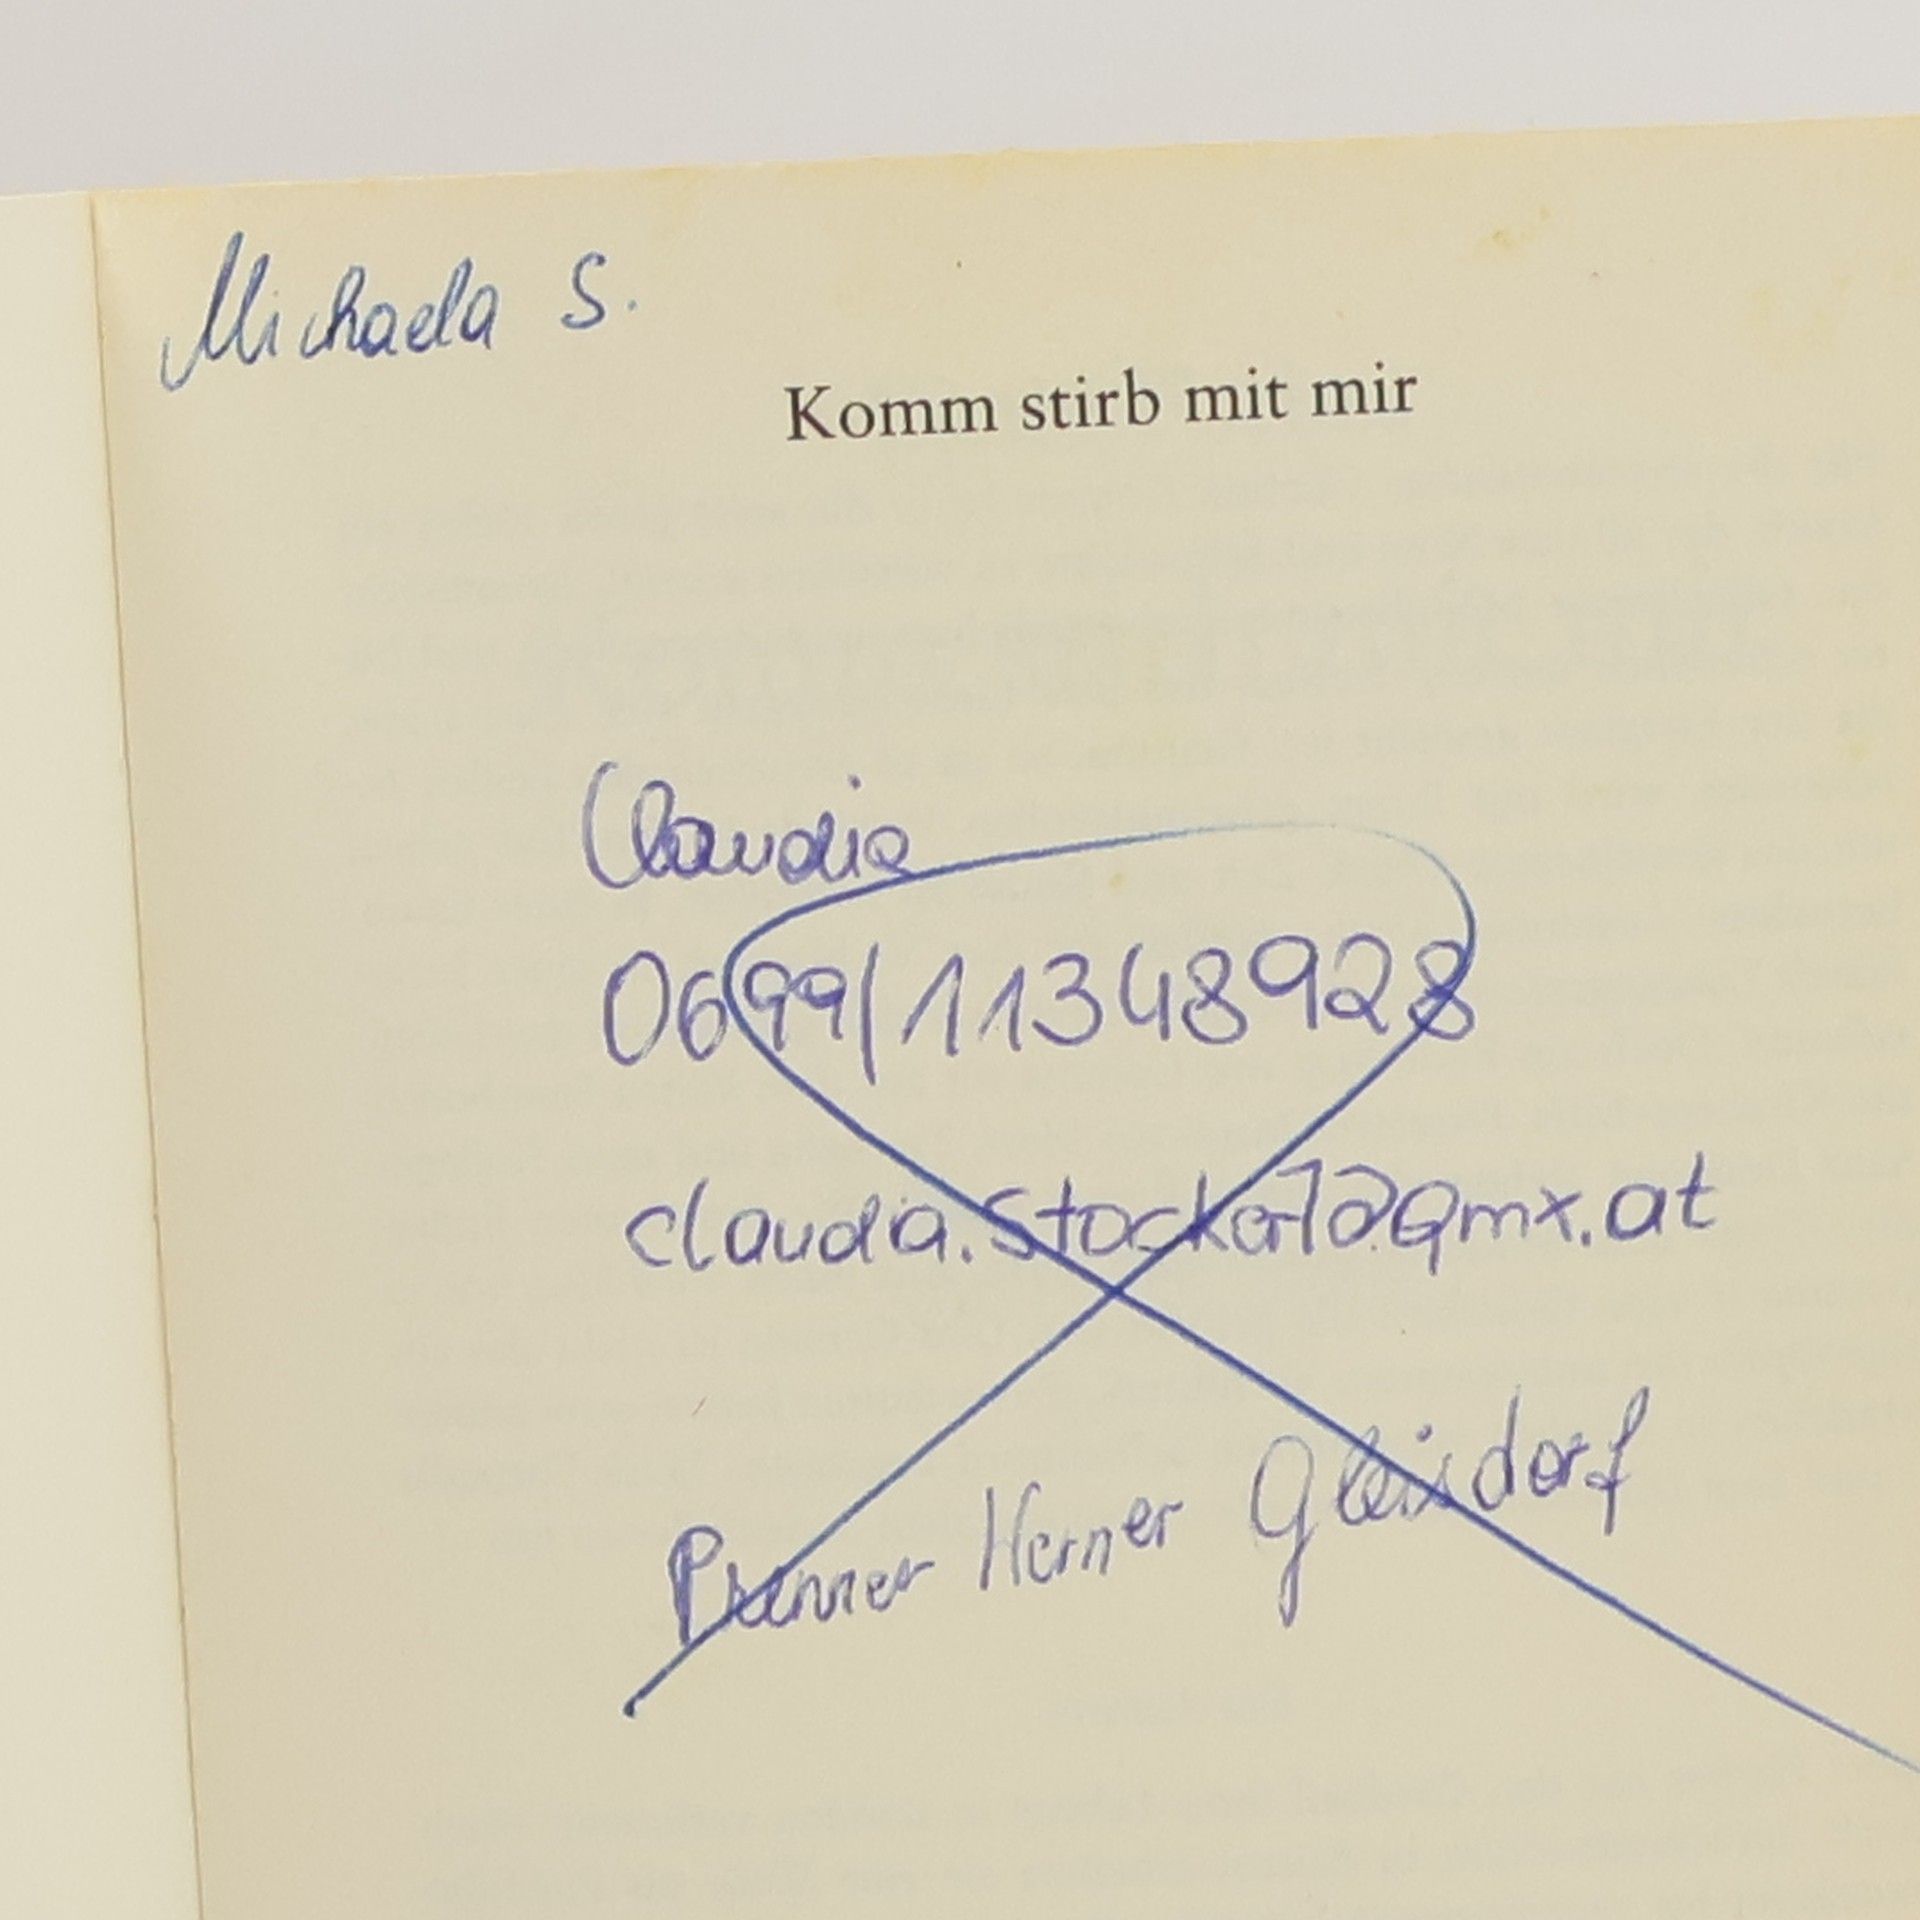 Michaela S.
Komm stirb mit mir
Claudia
0699/11348928
claudia.stocker1@gmx.at
Werner Gleisdorf